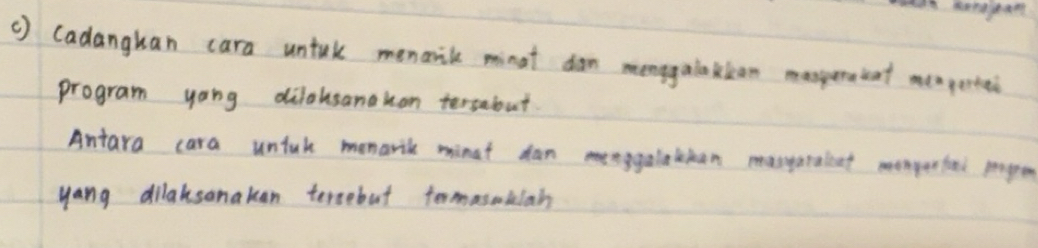 kerajaan
c) Cadangkan cara untuk menarik minat dan menggalakkan masyarakat menyertai
program yang dilaksanakan tersebut
Antara cara untuk menarik minat dan menggalakkan masyarakat menyertai program
yang dilaksanakan tersebut termasuklah